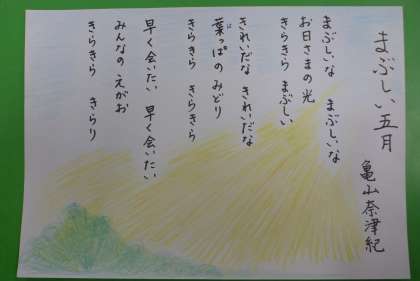 まぶしい五月
亀山奈津紀
まぶしいな　まぶしいな
お日さまの光
きらきら　まぶしい
きれいだな　きれいだな
葉っぱのみどり
きらきら　きらきら
早く会いたい　早く会いたい
みんなの　えがお
きらきら　きらり